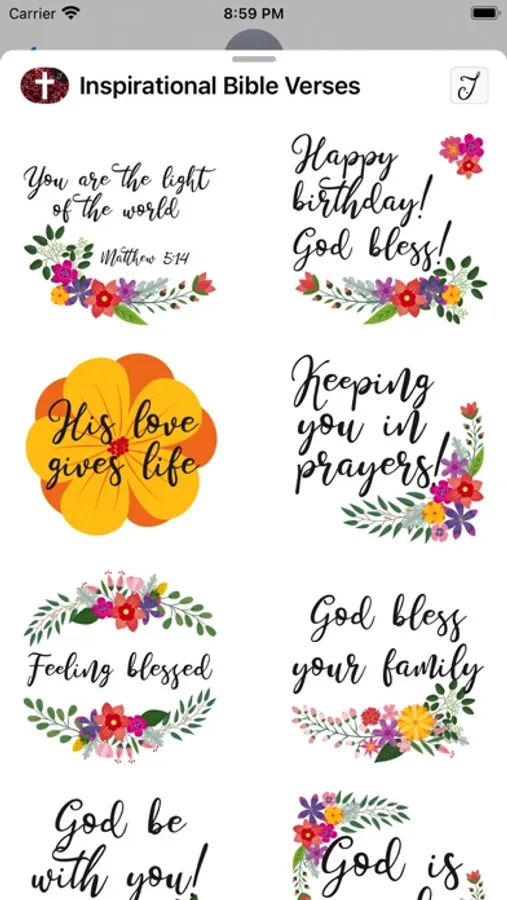 Carrier
8:59 PM
Inspirational Bible Verses
J
You are the light
of the world
Matthew 5:14
Happy
birthday!
God bless!
His love
gives life
Keeping
you in
prayers!
Feeling blessed
God bless
your family
God be
with you!
God is